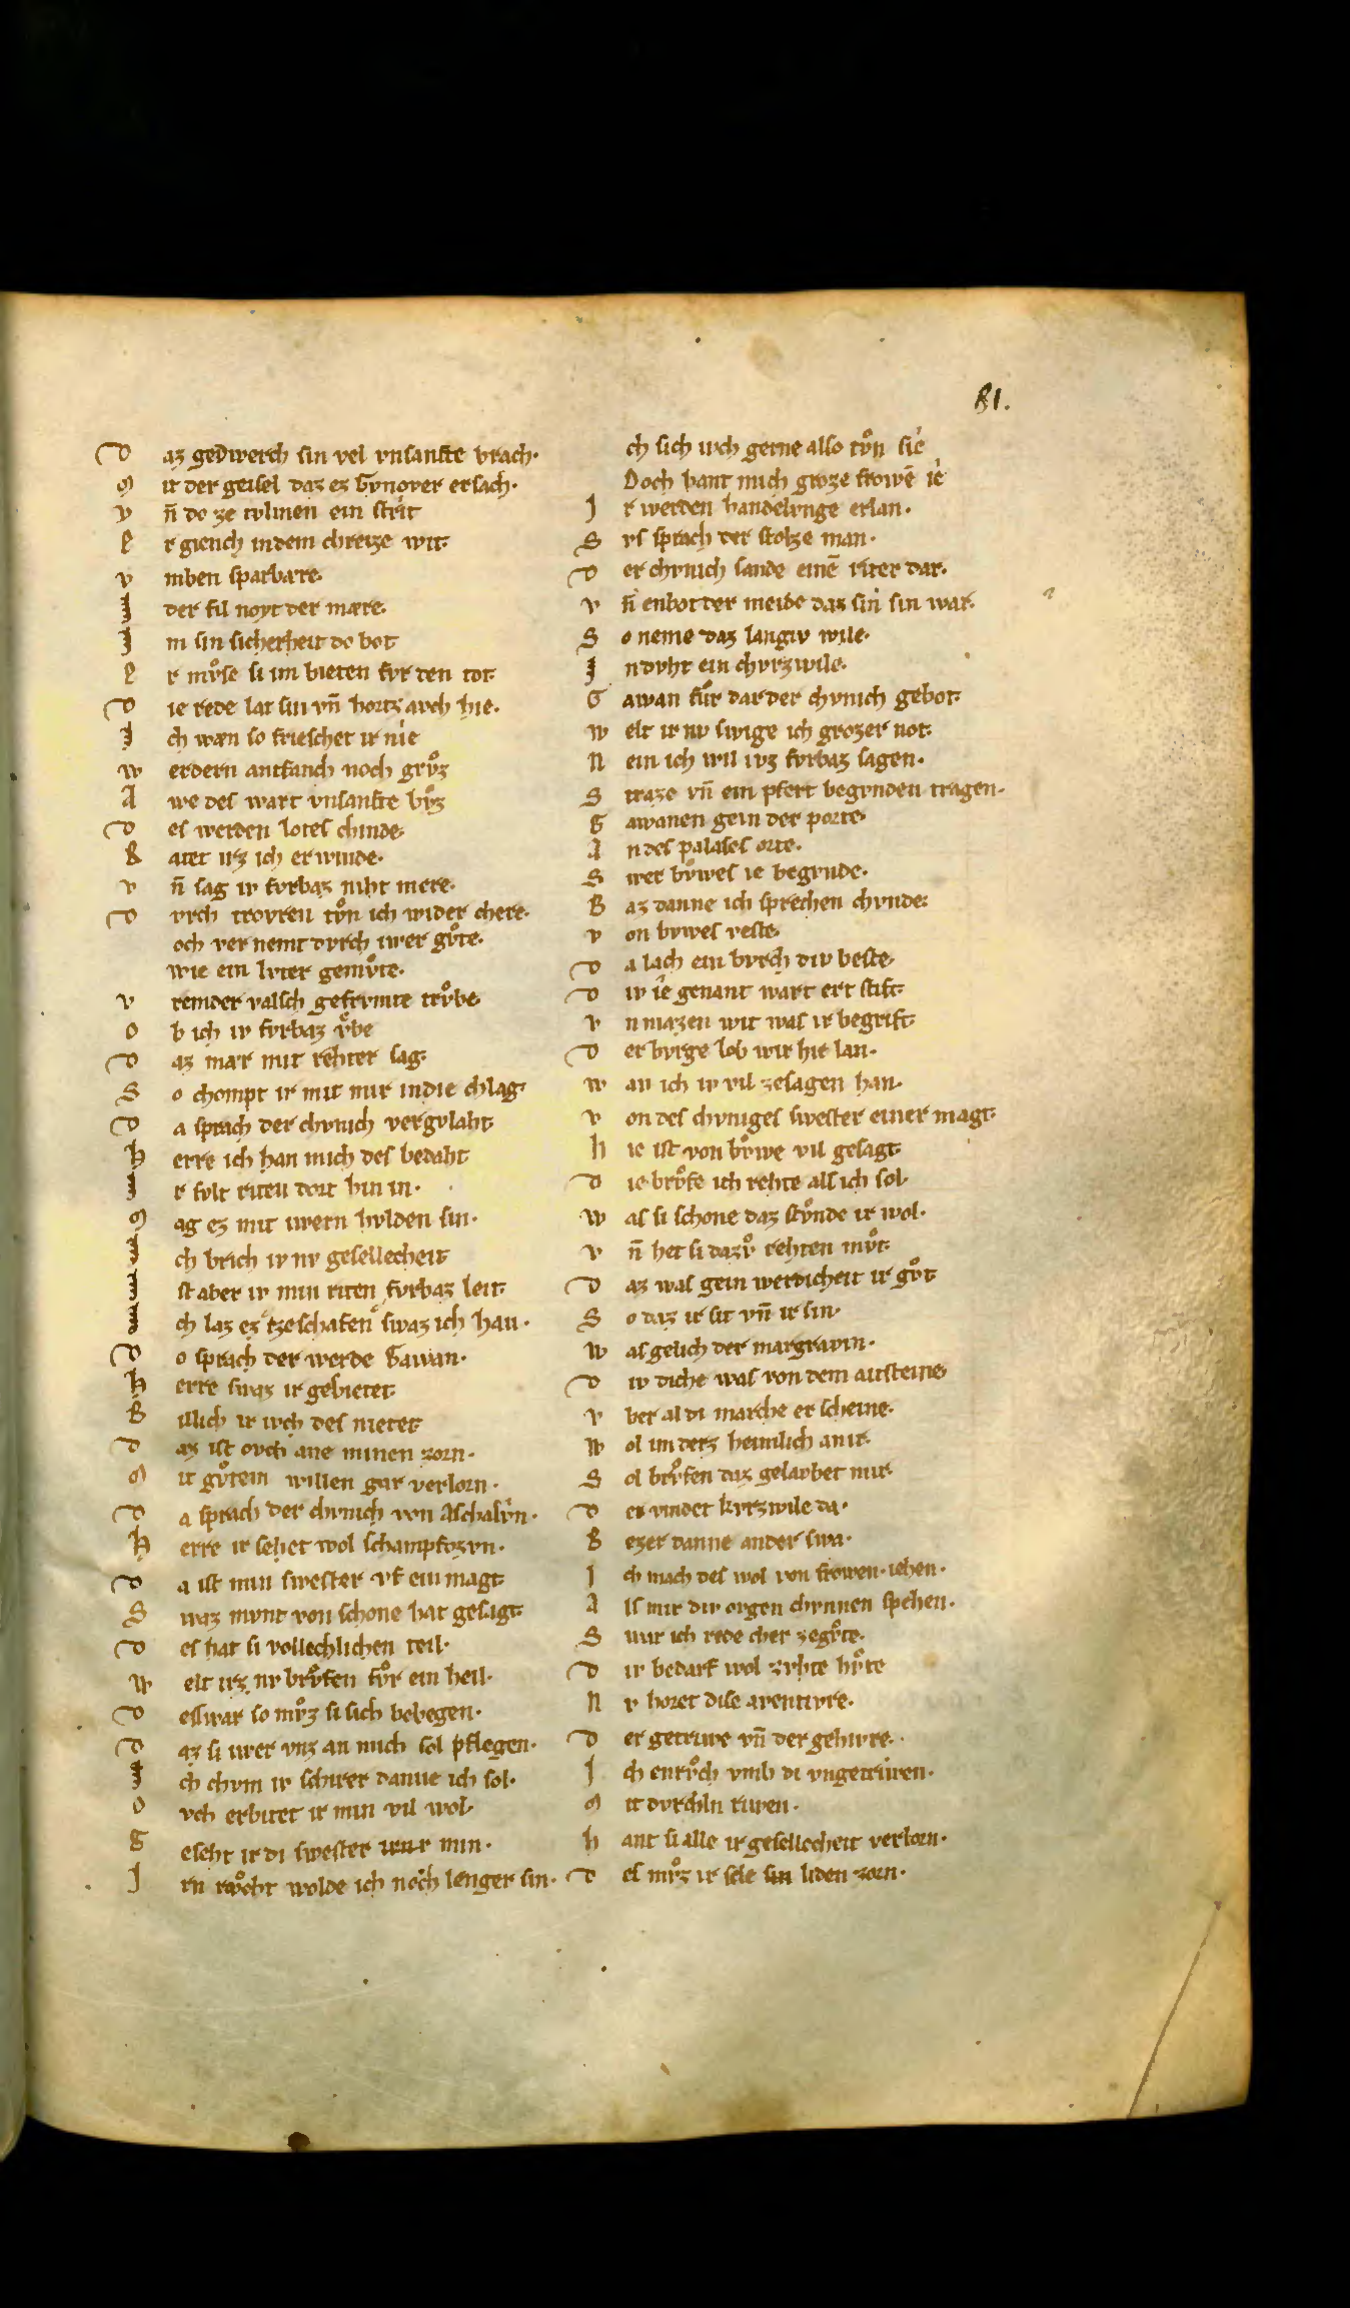 81.
D az getwerch sin vel vnsanfte brach·
M it der geisel daz ez Gynover ersach·
V n̄ do ze tvlmen ein strit
E r giench in dem chreize wit·
V mben sparbære·
I der fil noyt der mære·
I m sin sicherheit do bot
E r mvͦse si im bieten fvr den tot·
D ie rede lat sin vn̄ hortz avch hie·
I ch wæn so frieschet ir nie
W erdern antfanch noch grvͦz
A we des wart vnsanfte bvͦz
D es werden lotes chinde·
R atet irz ich erwinde·
V n̄ sag iv fvrbaz niht mere·
D vrch trovren tvͦn ich wider chere·
och vernemt dvrch iwer gvͦte·
wie ein lvter gemvͦte·
V remder valsch gefrvmte trvͦbe
O b ich iv fvrbaz vͦbe
D az mær mit rehter sag·
S o chompt ir mit mir in die chlag·
D a sprach der chvnich vergvlaht
H erre ich han mich des bedaht
I r svlt riten dort hin in·
M ag ez mit iwern hvlden sin·
I ch brich iv nv gesellecheit
I st aber iv min riten fvrbaz leit·
I ch laz ez tzeschafen swaz ich han·
D o sprach der werde Gawan·
H erre swaz ir gebietet
B illich ir iwch des nietet
D az ist ovch ane minen zorn·
M it gvͦtem willen gar verlorn·
D a sprach der chvnich von Aschalvn·
H erre ir sehet wol schampfozvn·
D a ist min swester vf ein magt
S waz mvnt von schone hat gesagt·
D es hat si vollechlichen teil·
W elt irz nv brvͦfen fvͦr ein heil·
D eswar so mvͦz si sich bebegen·
D az si iwer vnz an mich sol pflegen·
I ch chvm iv schirer danne ich sol·
O vch erbitet ir min vil wol·
G eseht ir di swester iwer min·
I rn rvͦcht wolde ich noch lenger sin·
ch sich iwch gerne also tvͦn sie
Doch hant mich groze frowē ie
I r werden handelvnge erlan·
S vs sprach der stolze man·
D er chvnich sande einē riter dar·
V n̄ enbot der meide daz sin sin war·
S o neme daz langiv wile·
I n dvht ein chvrzwile·
G awan fvͦr dar der chvnich gebot·
W elt ir nv swige ich grozer not·
N ein ich wil ivz fvrbaz sagen·
S traze vn̄ ein pfert begvnden tragen·
G awanen gein der porte·
A n des palases orte·
S wer bvͦwes ie begvnde·
B az danne ich sprechen chvnde·
V on bvwes veste·
D a lach ein bvrch div beste·
D iv ie genant wart ert stift·
V n mazen wit was ir begrift·
D er bvrge lob wir hie lan·
W an ich iv vil ze sagen han·
V on des chvniges swester einer magt·
H ie ist von bvͦwe vil gesagt·
D ie brvͦfe ich rehte als ich sol·
W as si schone daz stvͦnde ir wol·
V n̄ het si dazvͦ rehten mvͦt·
D az was gein werdicheit ir gvͦt
S o daz ir sit vn̄ ir sin·
W as gelich der margravin·
D iv diche was von dem aitsteine
V ber al di marche erscheine·
W ol im derz heimlich an ir·
S ol brvͦfen daz gelavbet mir·
D er vindet kvrzwile da·
B ezer danne ander swa·
I ch mach des wol von frowen iehen·
A ls mir div ovgen chvnnen spehen·
S wir ich rede cher ze gvͦte·
D iv bedarf wol zvhte hvͦte
N v horet dise aventivre·
D er getriwe vn̄ der gehivre·
I ch enrvͦch vmb di vngetriwen·
M it dvrchln riwen·
H ant si alle ir gesellecheit verlorn·
D es mvͦz ir sele sin liden zorn·